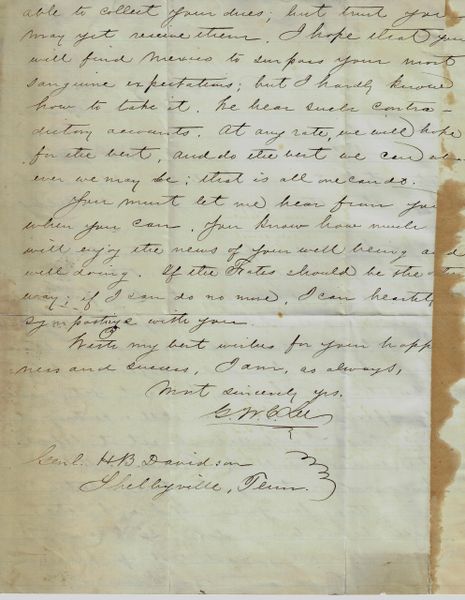 able to collect your dues; but trust you
may yet receive them. I hope that you
will find Mexico to surpass your most
sanguine expectations; but I hardly know
how to take it. We hear such contra-
dictory accounts. At any rate, we will hope
for the best, and do the best we can wh
ever we may be; that is all one can do.
You must let me hear from you
when you can. You know how much
will enjoy the news of your well being and
well doing. If the Fates should be the oth
way; if I can do no more, I can heartily
sympathize with you.
With my best wishes for your happ
ness and success, I am, as always,
Most sincerely yrs.
G. W. C. Lee
Genl. H. B. Davidson
Shelbyville, Tenn.